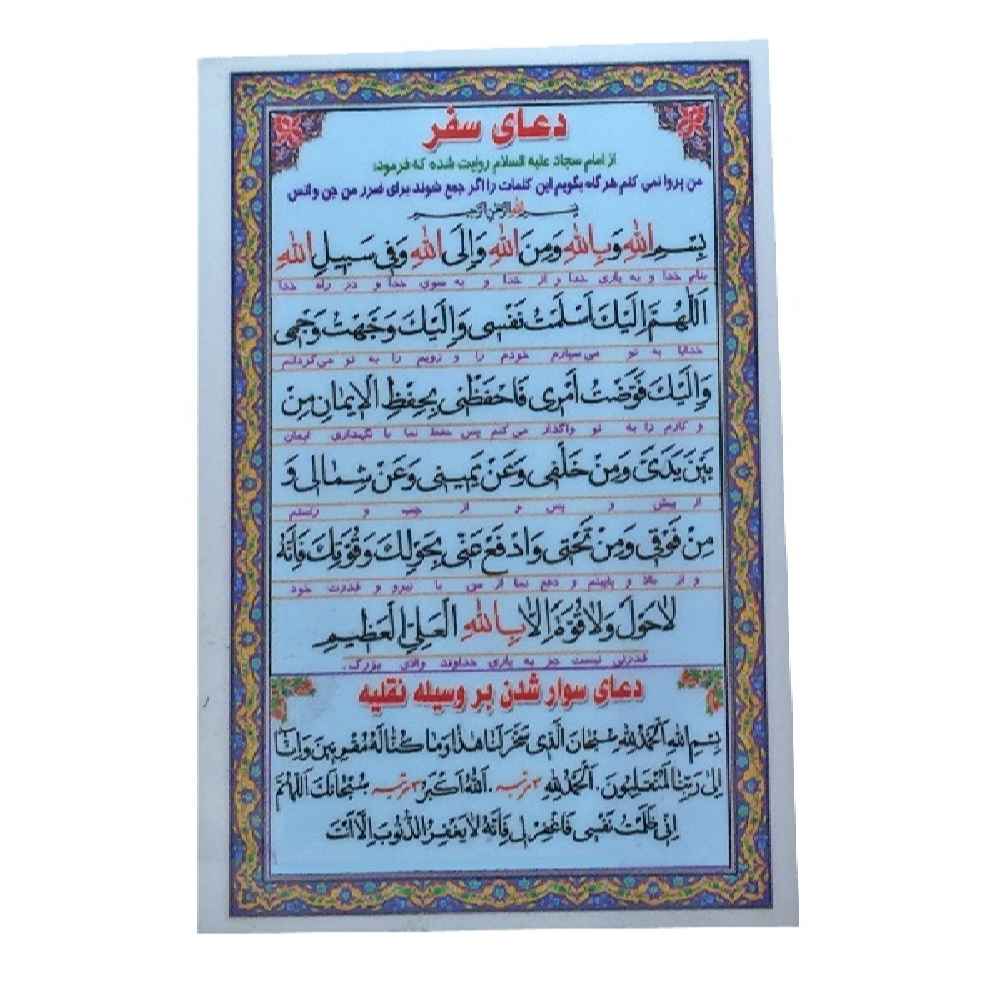 دعای سفر
از امام سجاد علیه السلام روایت شده که فرمود:
من پروا نمی کنم هر گاه بگویم این کلمات را اگر جمع شوند برای ضرر من جن وانس
بسم الله الرحمن الرحیم
بِسْمِ اللهِ وَبِاللهِ وَمِنَ اللهِ وَاِلَی اللهِ وَفی سَبیلِ اللهِ
بنام خدا و به یاری خدا و از خدا و به سوی خدا و در راه خدا
اَللّهُمَّ اِلَیْكَ اَسْلَمْتُ نَفْسی وَاِلَیْكَ وَجَّهْتُ وَجْهی
خدایا به تو می‌سپارم خودم را و رویم را به تو می‌گردانم
وَاِلَیْكَ فَوَّضْتُ اَمْری فَاحْفَظْنی بِحِفْظِ الْایمانِ مِنْ
و کارم را به تو واگذار می‌کنم پس حفظ نما با نگهداری ایمان
بَیْنِ یَدَیَّ وَمِنْ خَلْفی وَعَنْ یَمینی وَعَنْ شِمالی وَ
از پیش و پس و از چپ و راستم
مِنْ فَوْقی وَمِنْ تَحْتی وَادْفَعْ عَنّی بِحَوْلِكَ وَقُوَّتِكَ فَاِنَّهُ
و از بالا و پایینم و دفع نما از من با نیرو و قدرت خود
لاحَوْلَ وَلاقُوَّةَ اِلاّ بِاللهِ الْعَلِیِّ الْعَظیمِ
قدرتی نیست جز به یاری خداوند والای بزرگ.
دعای سوار شدن بر وسیله نقلیه
بِسْمِ اللهِ اَلْحَمْدُ لِلّهِ سُبْحانَ الَّذی سَخَّرَ لَنا هذا وَما کُنّا لَهُ مُقْرِنینَ وَاِنّا
اِلی رَبِّنا لَمُنْقَلِبُونَ. اَلْحَمْدُ لِلّهِ ۳ مرتبه. اَللهُ اَکْبَرُ ۳ مرتبه سُبْحانَكَ اللّهُمَّ
اِنّی ظَلَمْتُ نَفْسی فَاغْفِرْ لی فَاِنَّهُ لا یَغْفِرُ الذُّنُوبَ اِلاّ اَنْتَ